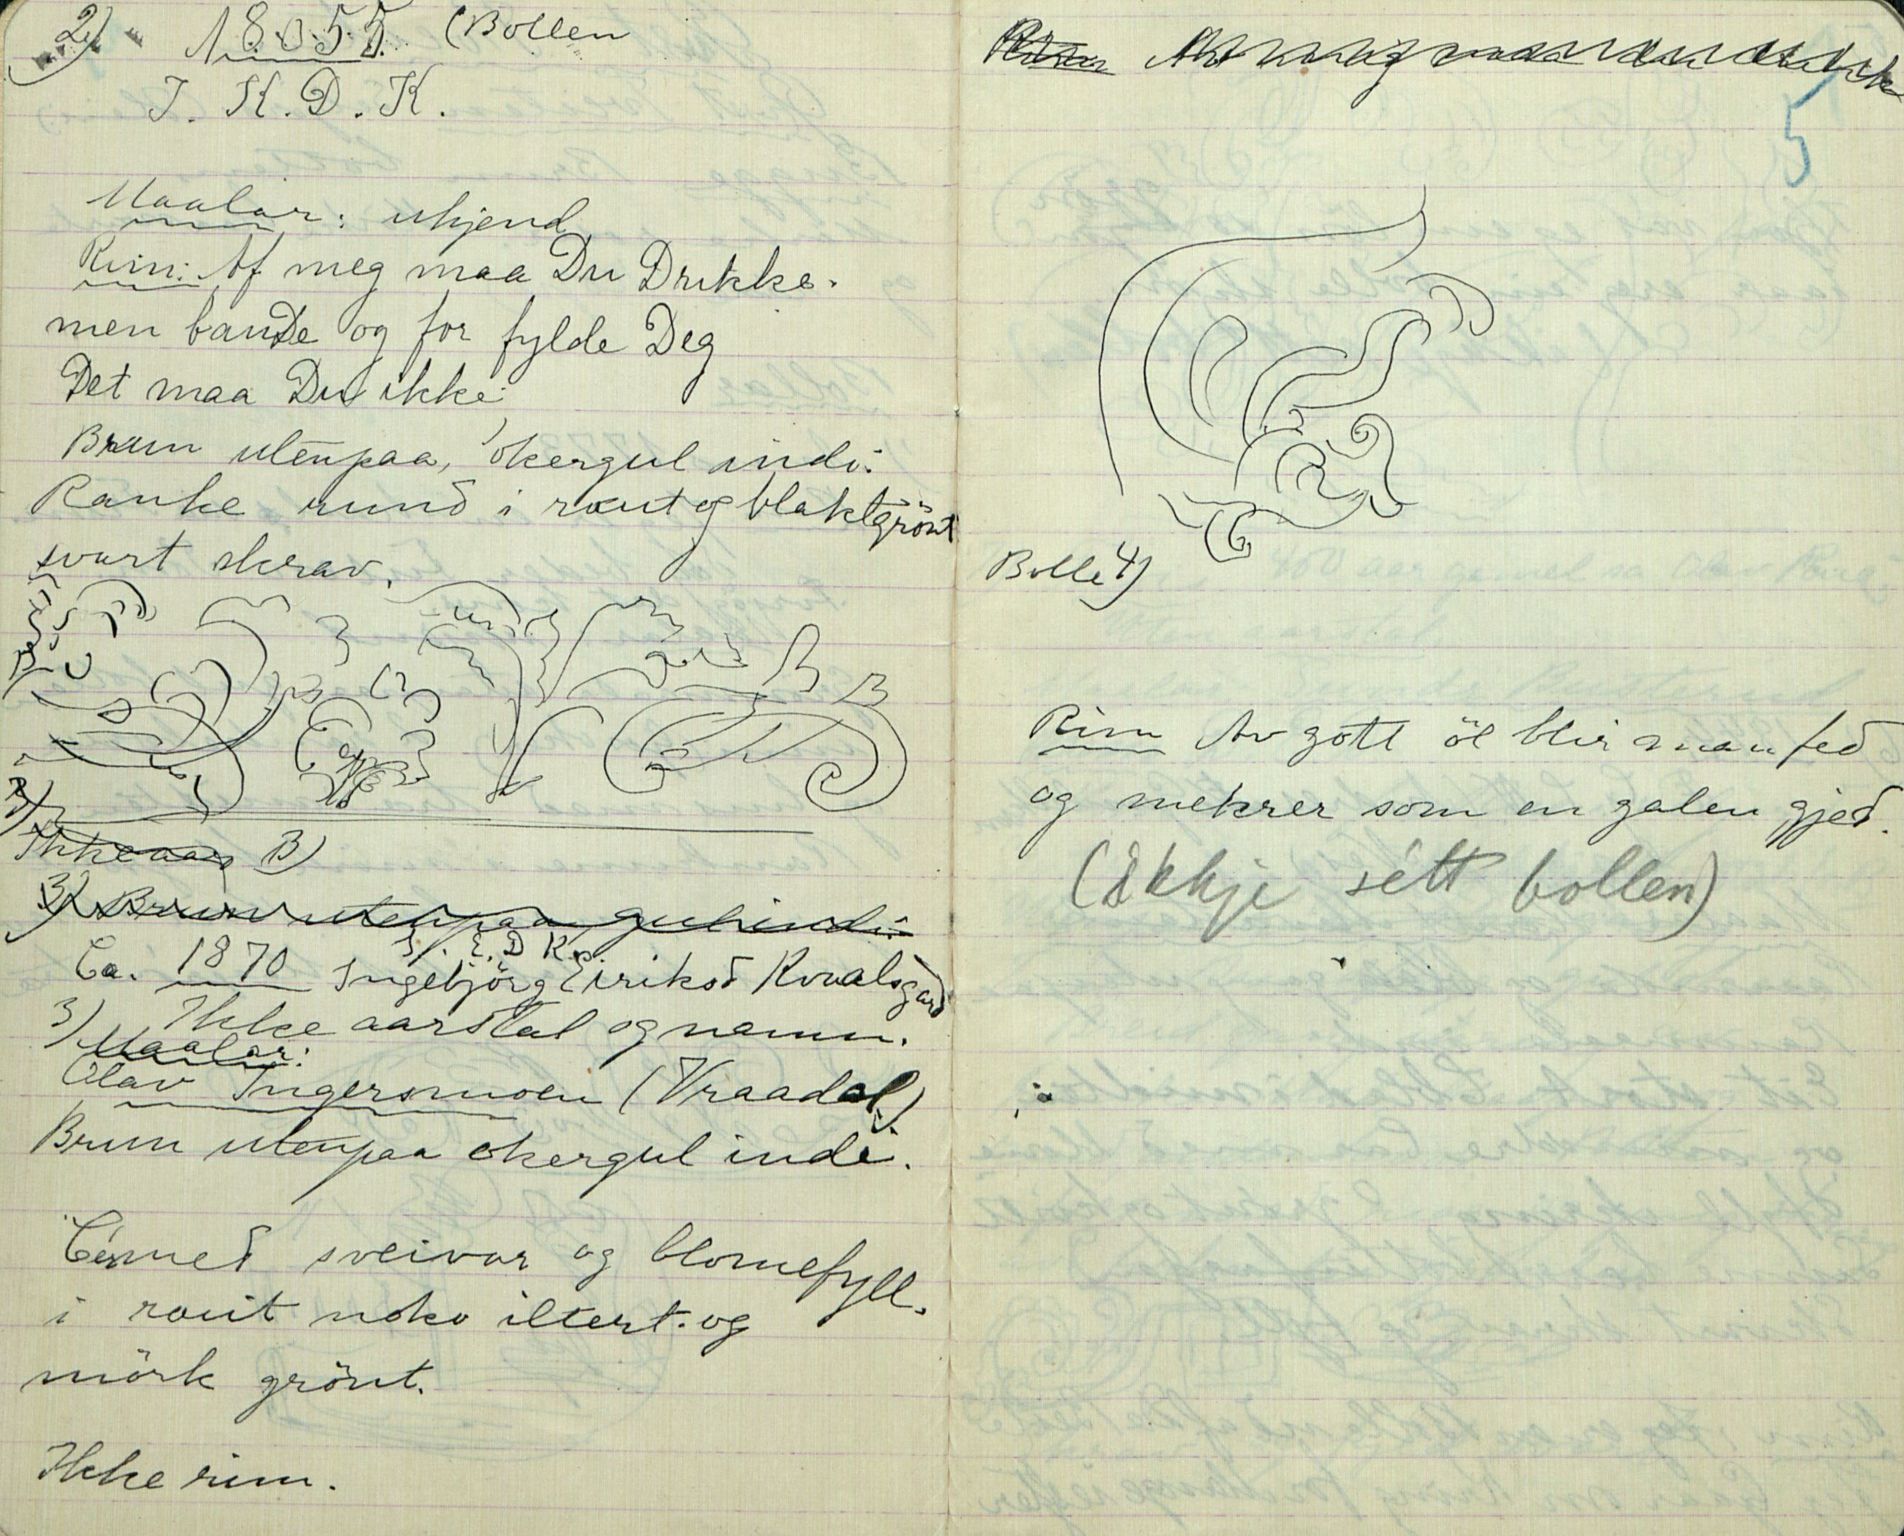 2) 18055. (Bollen
J. K. D. K.
Maalar: ukjend
Rim: Af meg maa Du Drikke.
men bande og for fylde Deg
Det maa Du ikke
Brun utenpaa, okergul indi.
Ranke rund i raut og blaktgrönt
svart skrav.
3)
Ikke aar B)
3) Brun utenpaa gul indi
J. E. D. K.
Ca. 1870 Ingebjörg Eiriksd Kvaalsgard
3) Ikke aarstal og namn.
Maalar:
Olav Ingersmoen (Vraadal)
Brun utenpaa okergul indi.
C med sveivar og blomefyll.
i raut noko iltert. og
mörk grönt.
Ikke rim.
5
Bolle 4)
Rim Av gott öl blir man fed
og mekrer som en galen gjed.
(Ikkje sétt bollen)